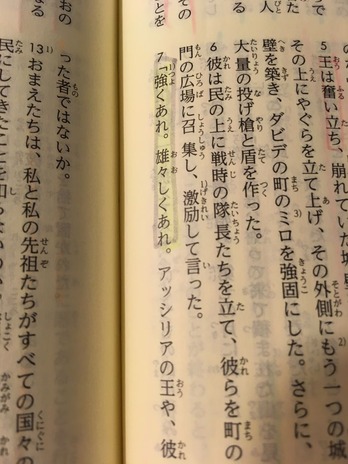 5 王は奮い立ち、崩れていた城
その上にやぐらを立て上げ、その外側にもう一つの城
壁を築き、ダビデの町のミロを強固にした。さらに、
大量の投げ槍と盾を作った。
6 彼は民の上に戦時の隊長たちを立て、彼らを町の
門の広場に召集し、激励して言った。
7「強くあれ。雄々しくあれ。アッシリアの王や、彼
おの
ことを
った者ではないか。
13 おまえたちは、私と私の先祖たちがすべての国々の
民にしてきたことを知らないのか